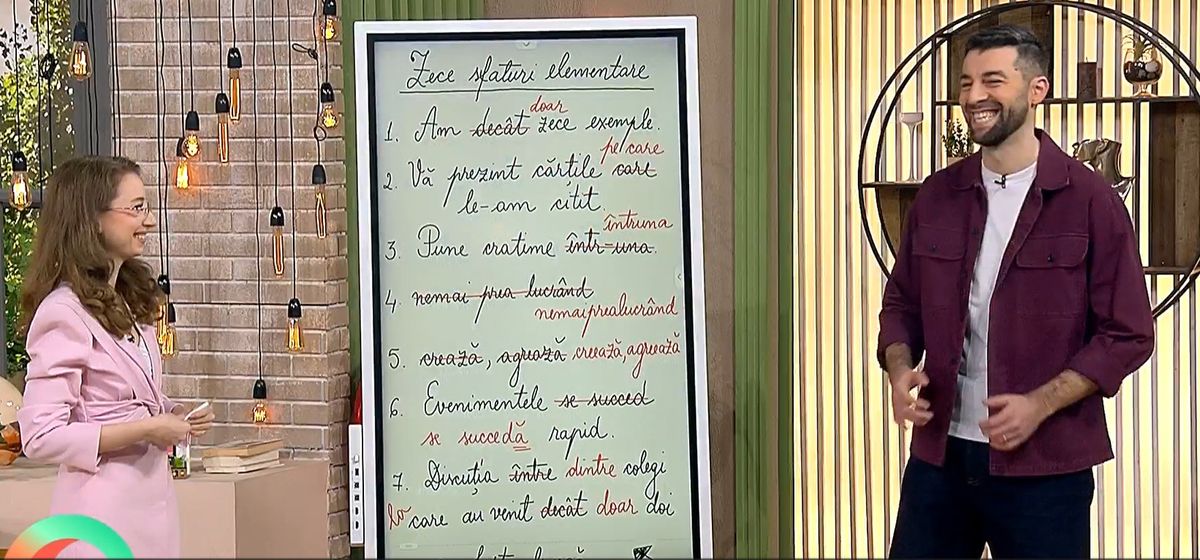 Zece sfaturi elementare
doar
1. Am decât zece exemple.
pe care
2. Vă prezint cărțile care
le-am citit.
întruna
3. Pune cratime într-una.
4. nemai prea lucrând
nemaiprealucrând
5. crează, agrează creează, agreează
6. Evenimentele se succed
se succedă rapid.
7. Discuția între dintre colegi
la care au venit decât doar doi